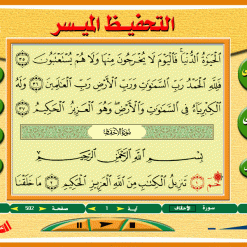 التحفيظ الميسر
الْحَيَوٰةُ الدُّنْيَا فَالْيَوْمَ لَا يُخْرَجُونَ مِنْهَا وَلَا هُمْ يُسْتَعْتَبُونَ ﴿٣٥﴾
فَلِلَّهِ الْحَمْدُ رَبِّ السَّمَٰوَٰتِ وَرَبِّ الْأَرْضِ رَبِّ الْعَٰلَمِينَ ﴿٣٦﴾ وَلَهُ
الْكِبْرِيَآءُ فِي السَّمَٰوَٰتِ وَالْأَرْضِ وَهُوَ الْعَزِيزُ الْحَكِيمُ ﴿٣٧﴾
سُورَةُ الْأَحْقَافِ
بِسْمِ اللَّهِ الرَّحْمَٰنِ الرَّحِيمِ
حمٓ ﴿١﴾ تَنزِيلُ الْكِتَٰبِ مِنَ اللَّهِ الْعَزِيزِ الْحَكِيمِ ﴿٢﴾ مَا خَلَقْنَا
سورة الأحقاف آية 1 صفحة 502